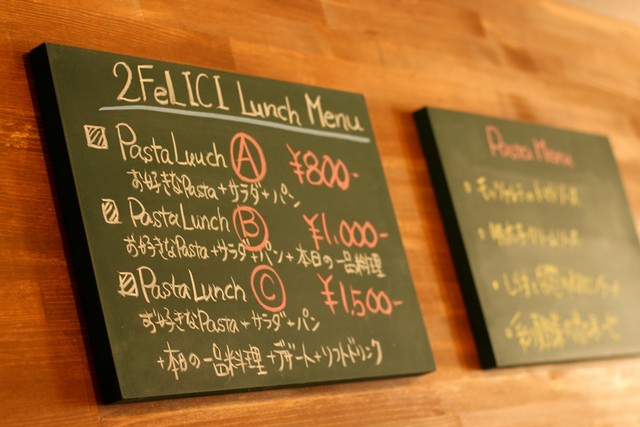 2FeLICI Lunch Menu
Pasta Luuch A ¥800-
お好きなPasta+サラダ+パン
Pasta Lunch B ¥1,000-
お好きなPasta+サラダ+パン+本日の一品料理
Pasta Lunch C ¥1,500-
お好きなPasta+サラダ+パン
+本日の一品料理+デザート+ソフトドリンク
Pasta Menu